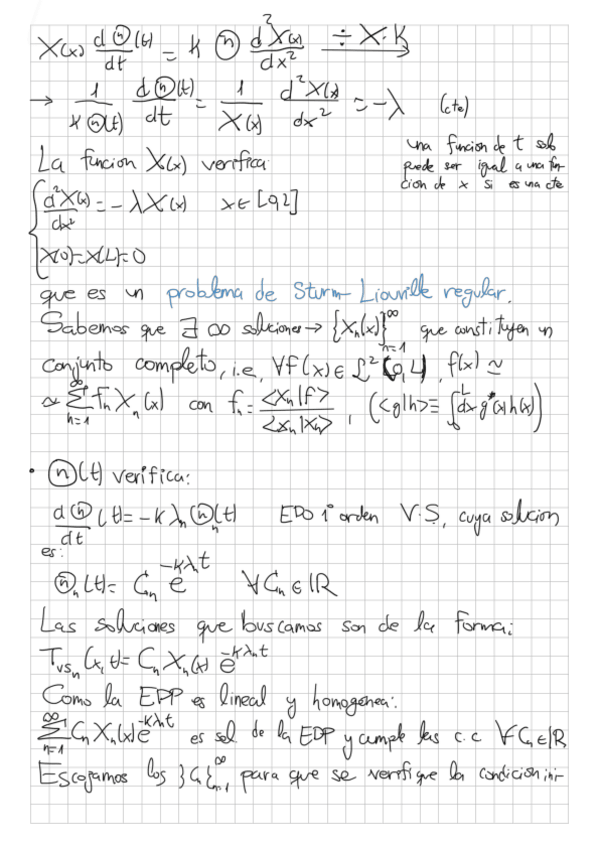 X(x) dⓗ(t)/dt = k ⓗ d²X(x)/dx² ÷X·k →
→ 1/(kⓗ(t)) dⓗ(t)/dt = 1/X(x) d²X(x)/dx² = -λ (cte)
una funcion de t solo
puede ser igual a una fun-
cion de x si es una cte
La funcion X(x) verifica
{ d²X(x)/dx² = -λX(x) x∈[0,L]
X(0)=X(L)=0
que es un problema de Sturm-Liouville regular.
Sabemos que ∃ ∞ soluciones → {Xₙ(x)}ₙ₌₁^∞ que constituyen un
conjunto completo, i.e, ∀f(x)∈ℒ²[0,L], f(x) ≃
≃ ∑ₙ₌₁^∞ fₙXₙ(x) con fₙ = <Xₙ|f>/<Xₙ|Xₙ>, (<g|h> ≡ ∫₀ᴸ dx g*(x)h(x))
• ⓗ(t) verifica:
dⓗ/dt (t) = -kλₙⓗₙ(t) EDO 1º orden V.S, cuya solucion
es:
ⓗₙ(t) = Cₙ e^(-kλₙt) ∀Cₙ∈ℝ
Las soluciones que buscamos son de la forma:
T_VSₙ(x,t) = CₙXₙ(x) e^(-kλₙt)
Como la EPP es lineal y homogénea:
∑ₙ₌₁^∞ CₙXₙ(x)e^(-kλₙt) es sol de la EDP y cumple las c.c ∀Cₙ∈ℝ
Escojamos los }Cₙ{ₙ₌₁^∞, para que se verifique la condicion ini-